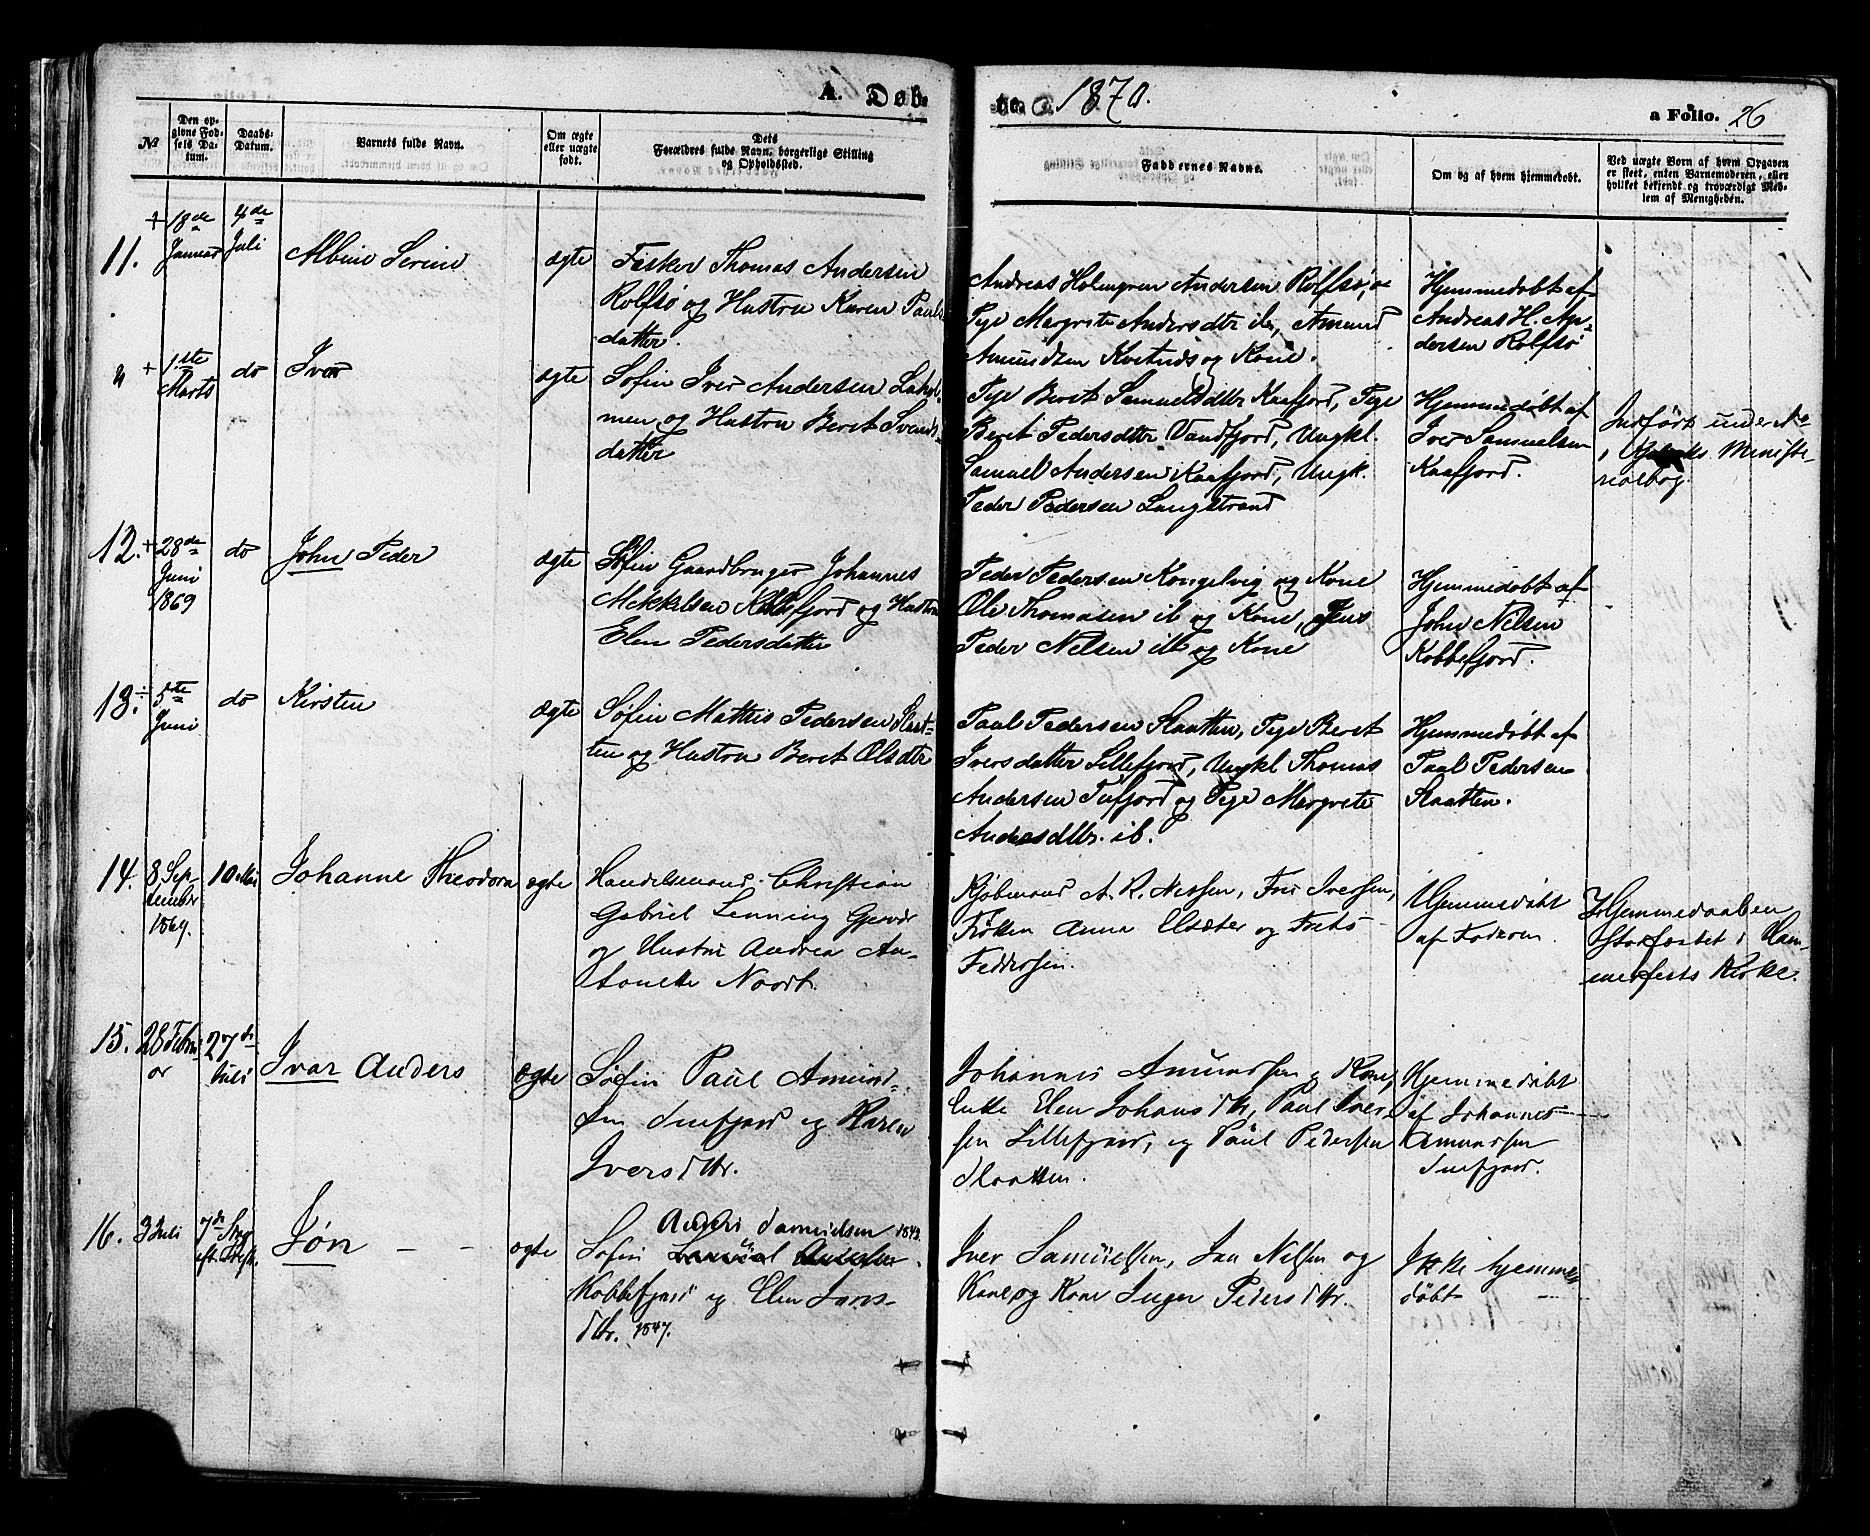 A. Døb-
te. 1870.
a Folio. 26
№
Den op-
givne Fød-
sels Da-
tum.
Daabs-
Datum.
Barnets fulde Navn.
Om ægte
eller uægte
født.
Dets
Forældres fulde Navn, borgerlige Stilling
og Opholdssted.
Faddernes Navne.
Om og af hvem hjemmedøbt.
Ved uægte Børn af hvem Opgaven
er skeet, enten Barnemoderen, eller
hvilket bekjendt og troværdigt Med-
lem af Menigheden.
11.
+ 18de
Januar
4de
Juli
Albine Serine
ægte
Fisker Thomas Andersen
Rolfsø og Hustru Karen Pauls-
datter.
Andreas Holmgren Andersen Rolfsø,
Pige Margrete Andersdtr ib, Amund
Amundsen Kvitnæs og Kone.
Hjemmedøbt af
Andreas H. An-
dersen Rolfsø
+ 1ste
Marts
do
Iver
ægte
Søfin Iver Andersen Lahol-
men og Hustru Beret Svends-
datter
Pige Beret Samuelsdtr Kaafjord, Pige
Berit Pedersdttr Vandfjord, Ungkl.
Samuel Andersen Kaafjord, Ungk.
Peder Pedersen Langstrand
Hjemmedøbt af
Iver Samuelsen
Kaafjord.
Indført under
Ministe-
rialbog.
12.
+ 28de
Juni
1869
do
John Peder
ægte
Søfin Gaardbruger Johannes
Mikkelsen Kobbefjord og Hustru
Elen Pedersdatter
Peder Pedersen Kongelvig og Kone
Ole Thomasen ib og Kone, Jens
Peder Nelsen ib og Kone
Hjemmedøbt af
John Nelsen
Kobbefjord.
13.
÷ 5te
Juni
do
Kirsten
ægte
Søfin Mathis Pedersen Slaat-
ten og Hustru Beret Olsdtr
Paul Pedersen Slaatten, Pige Beret
Iversdatter Lillefjord, Ungkl Thomas
Andersen Tufjord og Pige Margrete
Andersdttr. ib.
Hjemmedøbt af
Paul Pedersen
Slaatten.
14.
8 Sep-
tember
1869.
10 Mai
Johanne Theodora
ægte
Handelsmand Christian
Gabriel Lenning Gjesvær
og Hustru Andrea An-
tonette Noodt.
Kjøbmand A. R. Nissen, Fru Iversen,
Frøken Anna Elsæter og Frøk
Feddersen.
Hjemmedøbt
af Faderen
Hjemmedaaben
stadfæstet i Ham-
merfests Kirke.
15.
28 Febru
ar
27de
Juli
Ivar Anders
ægte
Søfin Paul Amund-
sen Snefjord og Karen
Iversdtr.
Johannis Amundsen og Kone,
Enke Elen Johansdtr, Paul Iver-
sen Lillefjord, og Paul Pedersen
Slaatten.
Hjemmedøbt
af Johannes
Amundsen
Snefjord.
16.
3 Juli
7de Søg
eft. Trefh.
Jøn
ægte
Anders Samuelsen 1843.
Søfin Samuel Andersen
Kobbefjord og Elen Jons-
dtr. 1847.
Iver Samuelsen, Jan Nilsen og
Kone og Kone Inger Pedersdtr.
Ikke hjemme-
døbt